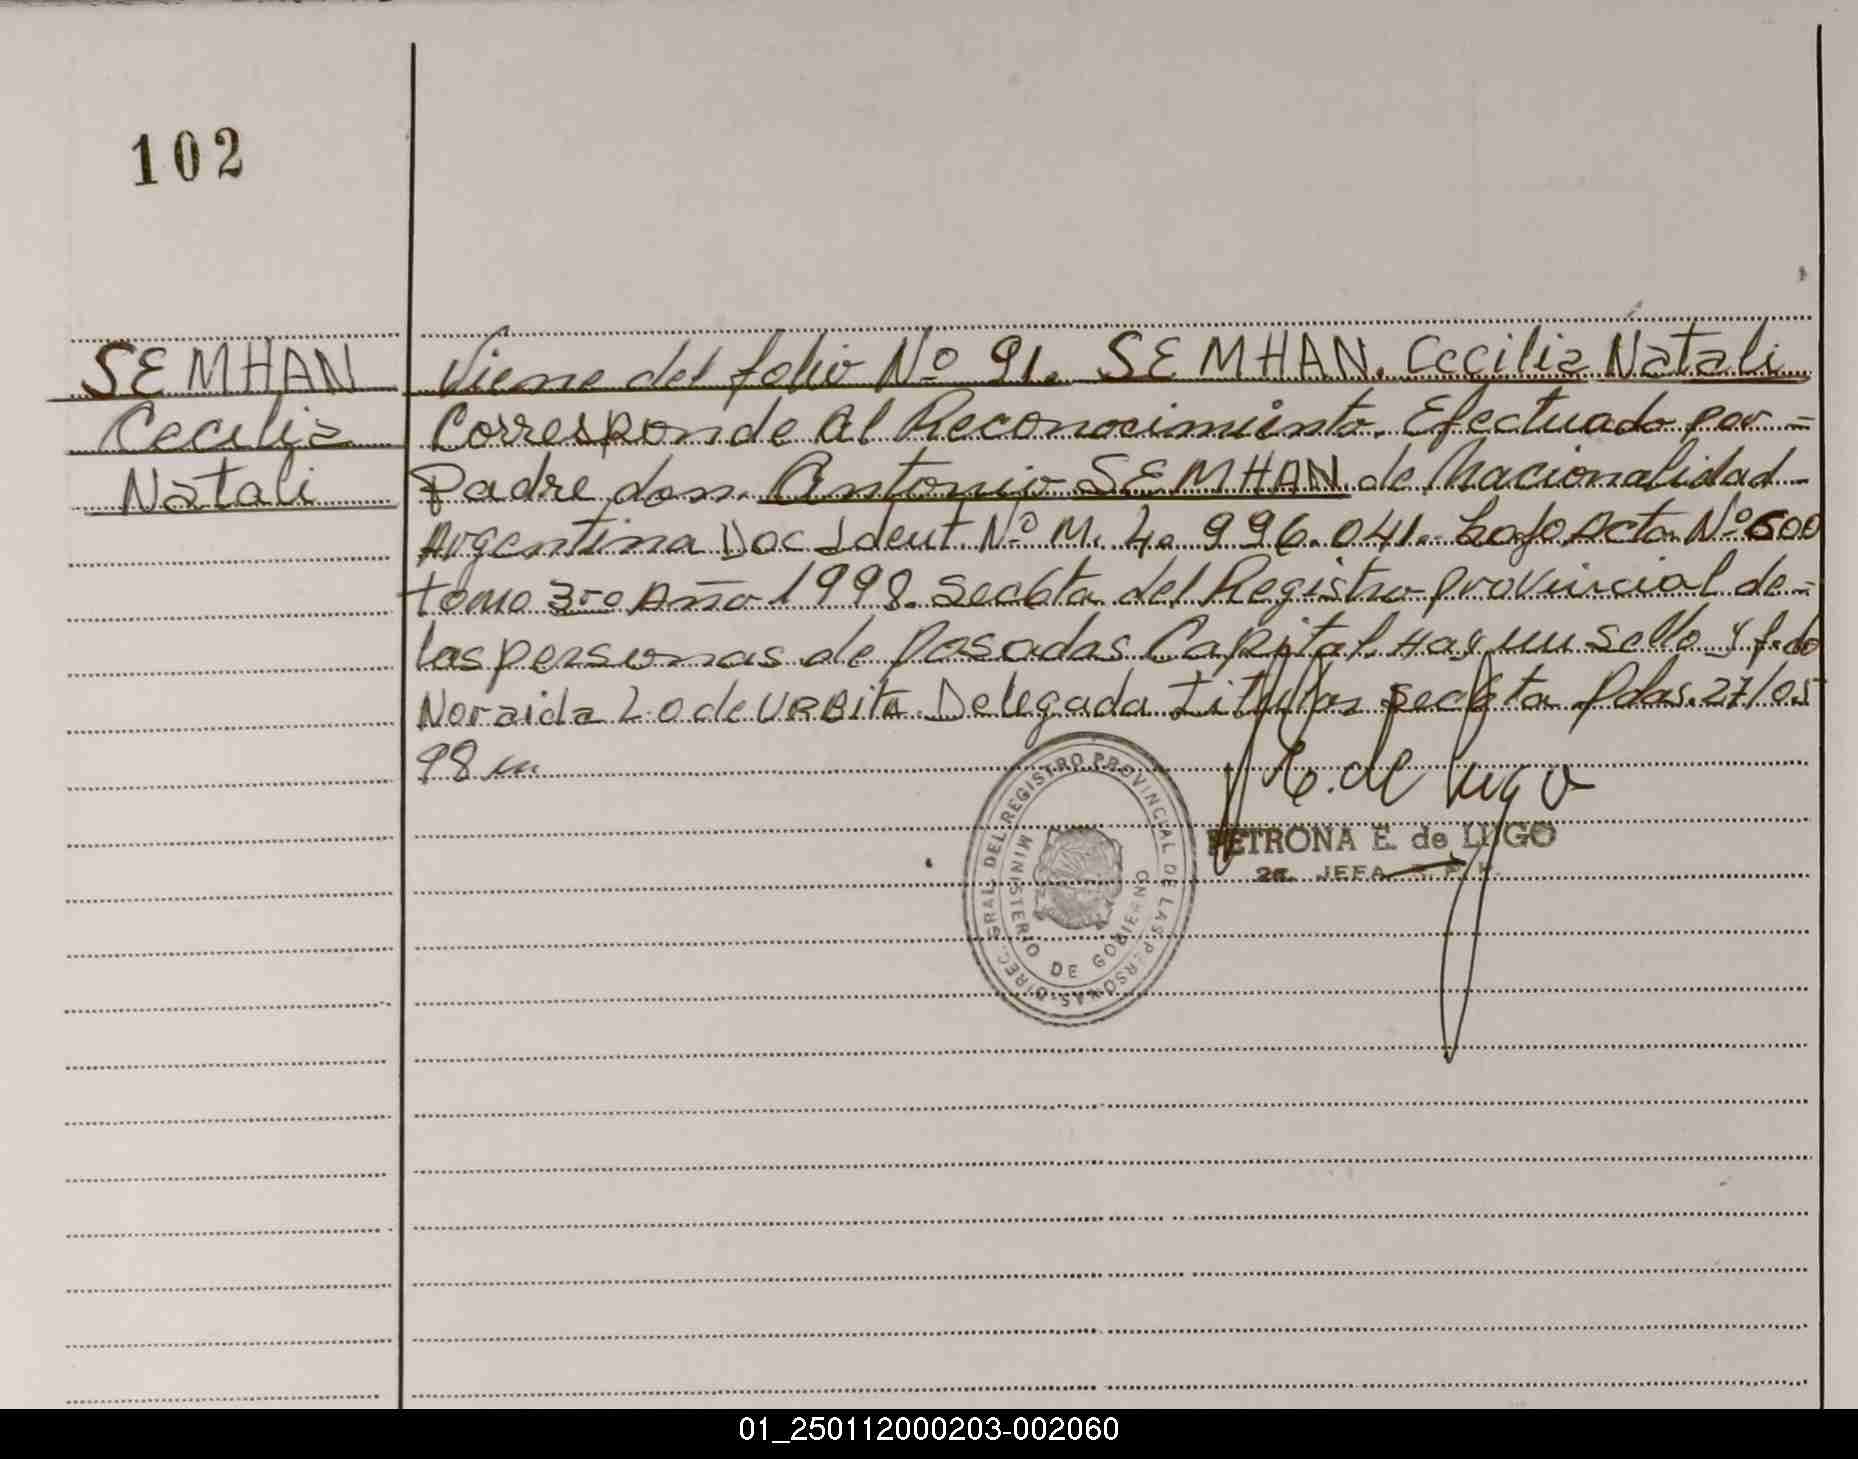 102
SEMHAN
Cecilia
Natali
Viene del folio Nº 91. SEMHAN. Cecilia Natali
Corresponde al Reconocimiento. Efectuado por =
Padre don. Antonio SEMHAN. de Nacionalidad
Argentina Doc Ident. Nº M. 4. 996.041. bajo Acta Nº 600
tomo 3ro Año 1998. Secc 6ta del Registro provincial de =
las personas de Posadas Capital. Hay un sello y f.do
Noraida L.O de URBita. Delegada Titular secc 6ta Pdas. 27/05
98
E. de Lugo
PETRONA E. de LUGO
2a. JEFA
DIREC. GRAL. DEL REGISTRO PROVINCIAL DE LAS PERSONAS
MINISTERIO DE GOBIERNO
01_250112000203-002060